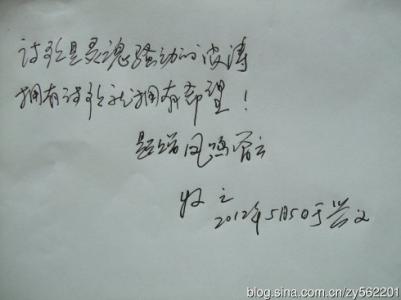 诗歌是灵魂骚动的波涛
拥有诗歌就拥有希望！
题赠凤鸣留言
2012年5月5日于兴文
blog.sina.com.cn/zy562201